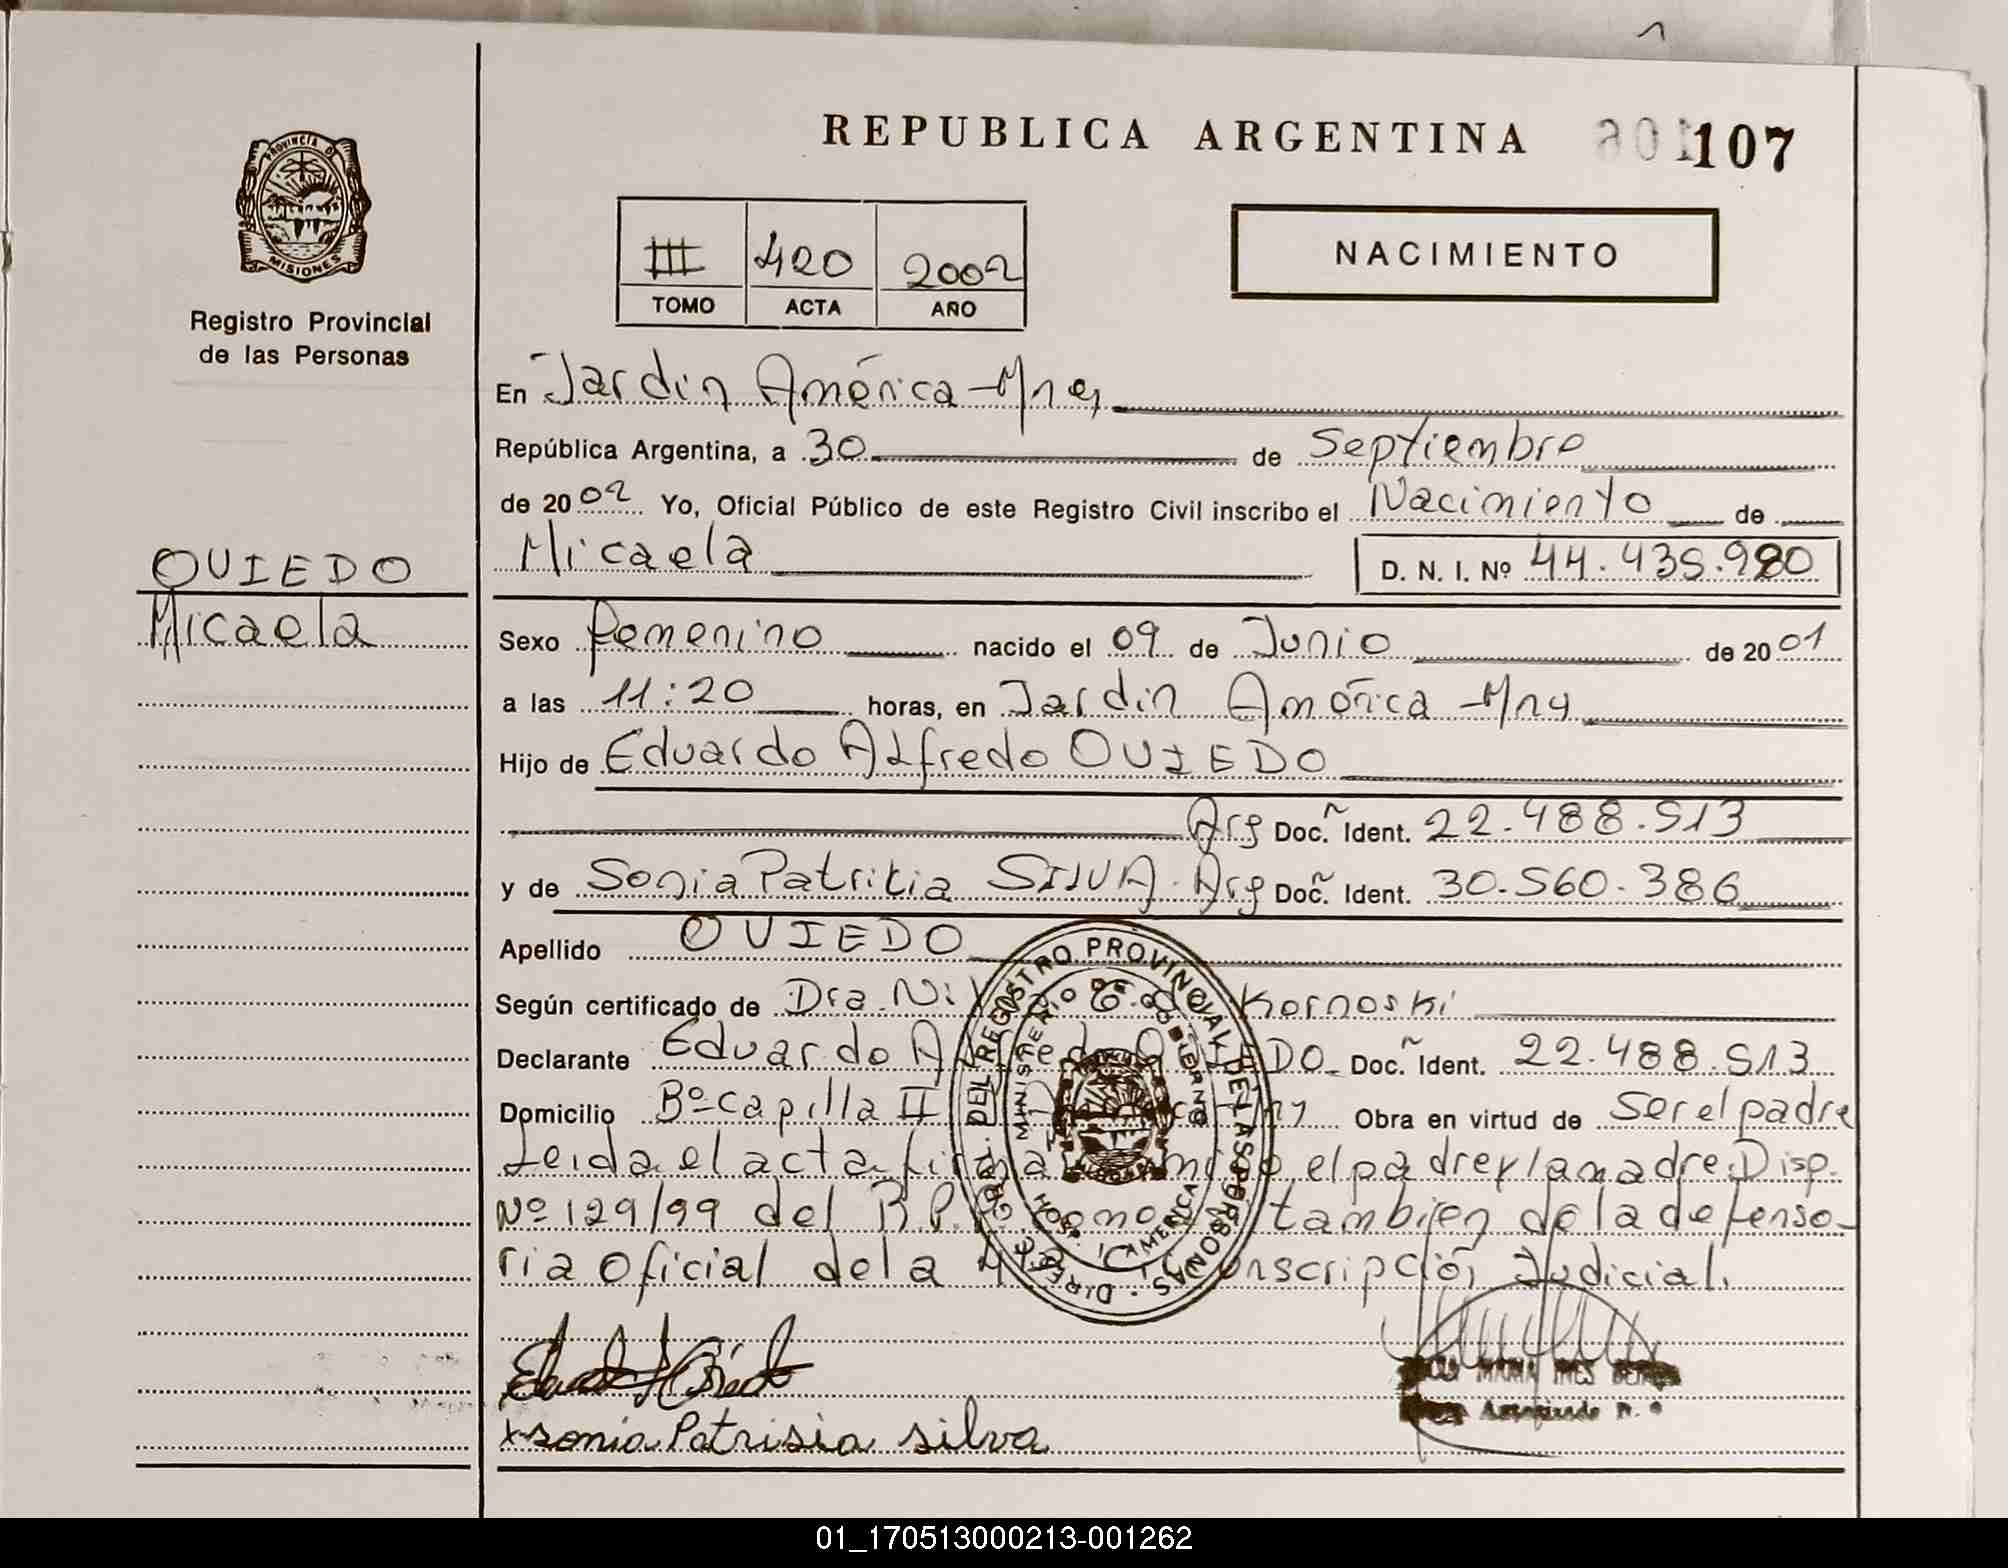 REPUBLICA ARGENTINA 107
PROVINCIA DE
MISIONES
Registro Provincial
de las Personas
III 420 2002
TOMO ACTA AÑO
NACIMIENTO
En Jardin América - Mnes
República Argentina, a 30 de Septiembre
de 2002 Yo, Oficial Público de este Registro Civil inscribo el Nacimiento de
OVIEDO
Micaela
Micaela D. N. I. Nº 44.435.980
Sexo femenino nacido el 09 de Junio de 2001
a las 11:20 horas, en Jardin América - Mny
Hijo de Eduardo Alfredo OVIEDO
Arg Doc. Ident. 22.488.513
y de Sonia Patricia SILVA. Arg Doc. Ident. 30.560.386
Apellido OVIEDO
Según certificado de Dra. Kornoski
Declarante Eduardo OVIEDO Doc. Ident. 22.488.513
Domicilio Bº Capilla II Obra en virtud de Ser el padre
Leida el acta el padre y la madre. Disp.
Nº 129/99 del R.P. como tambien de la defenso-
ria oficial de la 4ta Judicial.
DIREC. GRAL. DEL REGISTRO PROVINCIAL DE LAS PERSONAS
MINISTERIO DE GOBIERNO
HOSP. J. AMERICA
Sonia Patrisia silva
MARIA INES
01_170513000213-001262